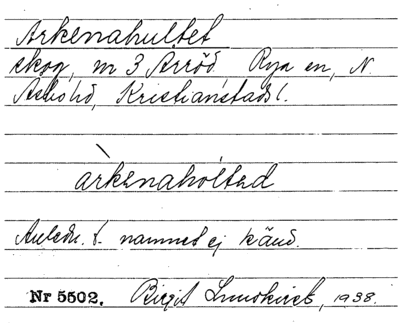 Arkenahultet
skog, nr 3 Arröd, Rya sn, N.
Åsbo hd, Kristianstads l.
àrkenahòltad
Anledn. t. namnet ej känd.
Nr 5502. Birgit Lundkvist, 1938.